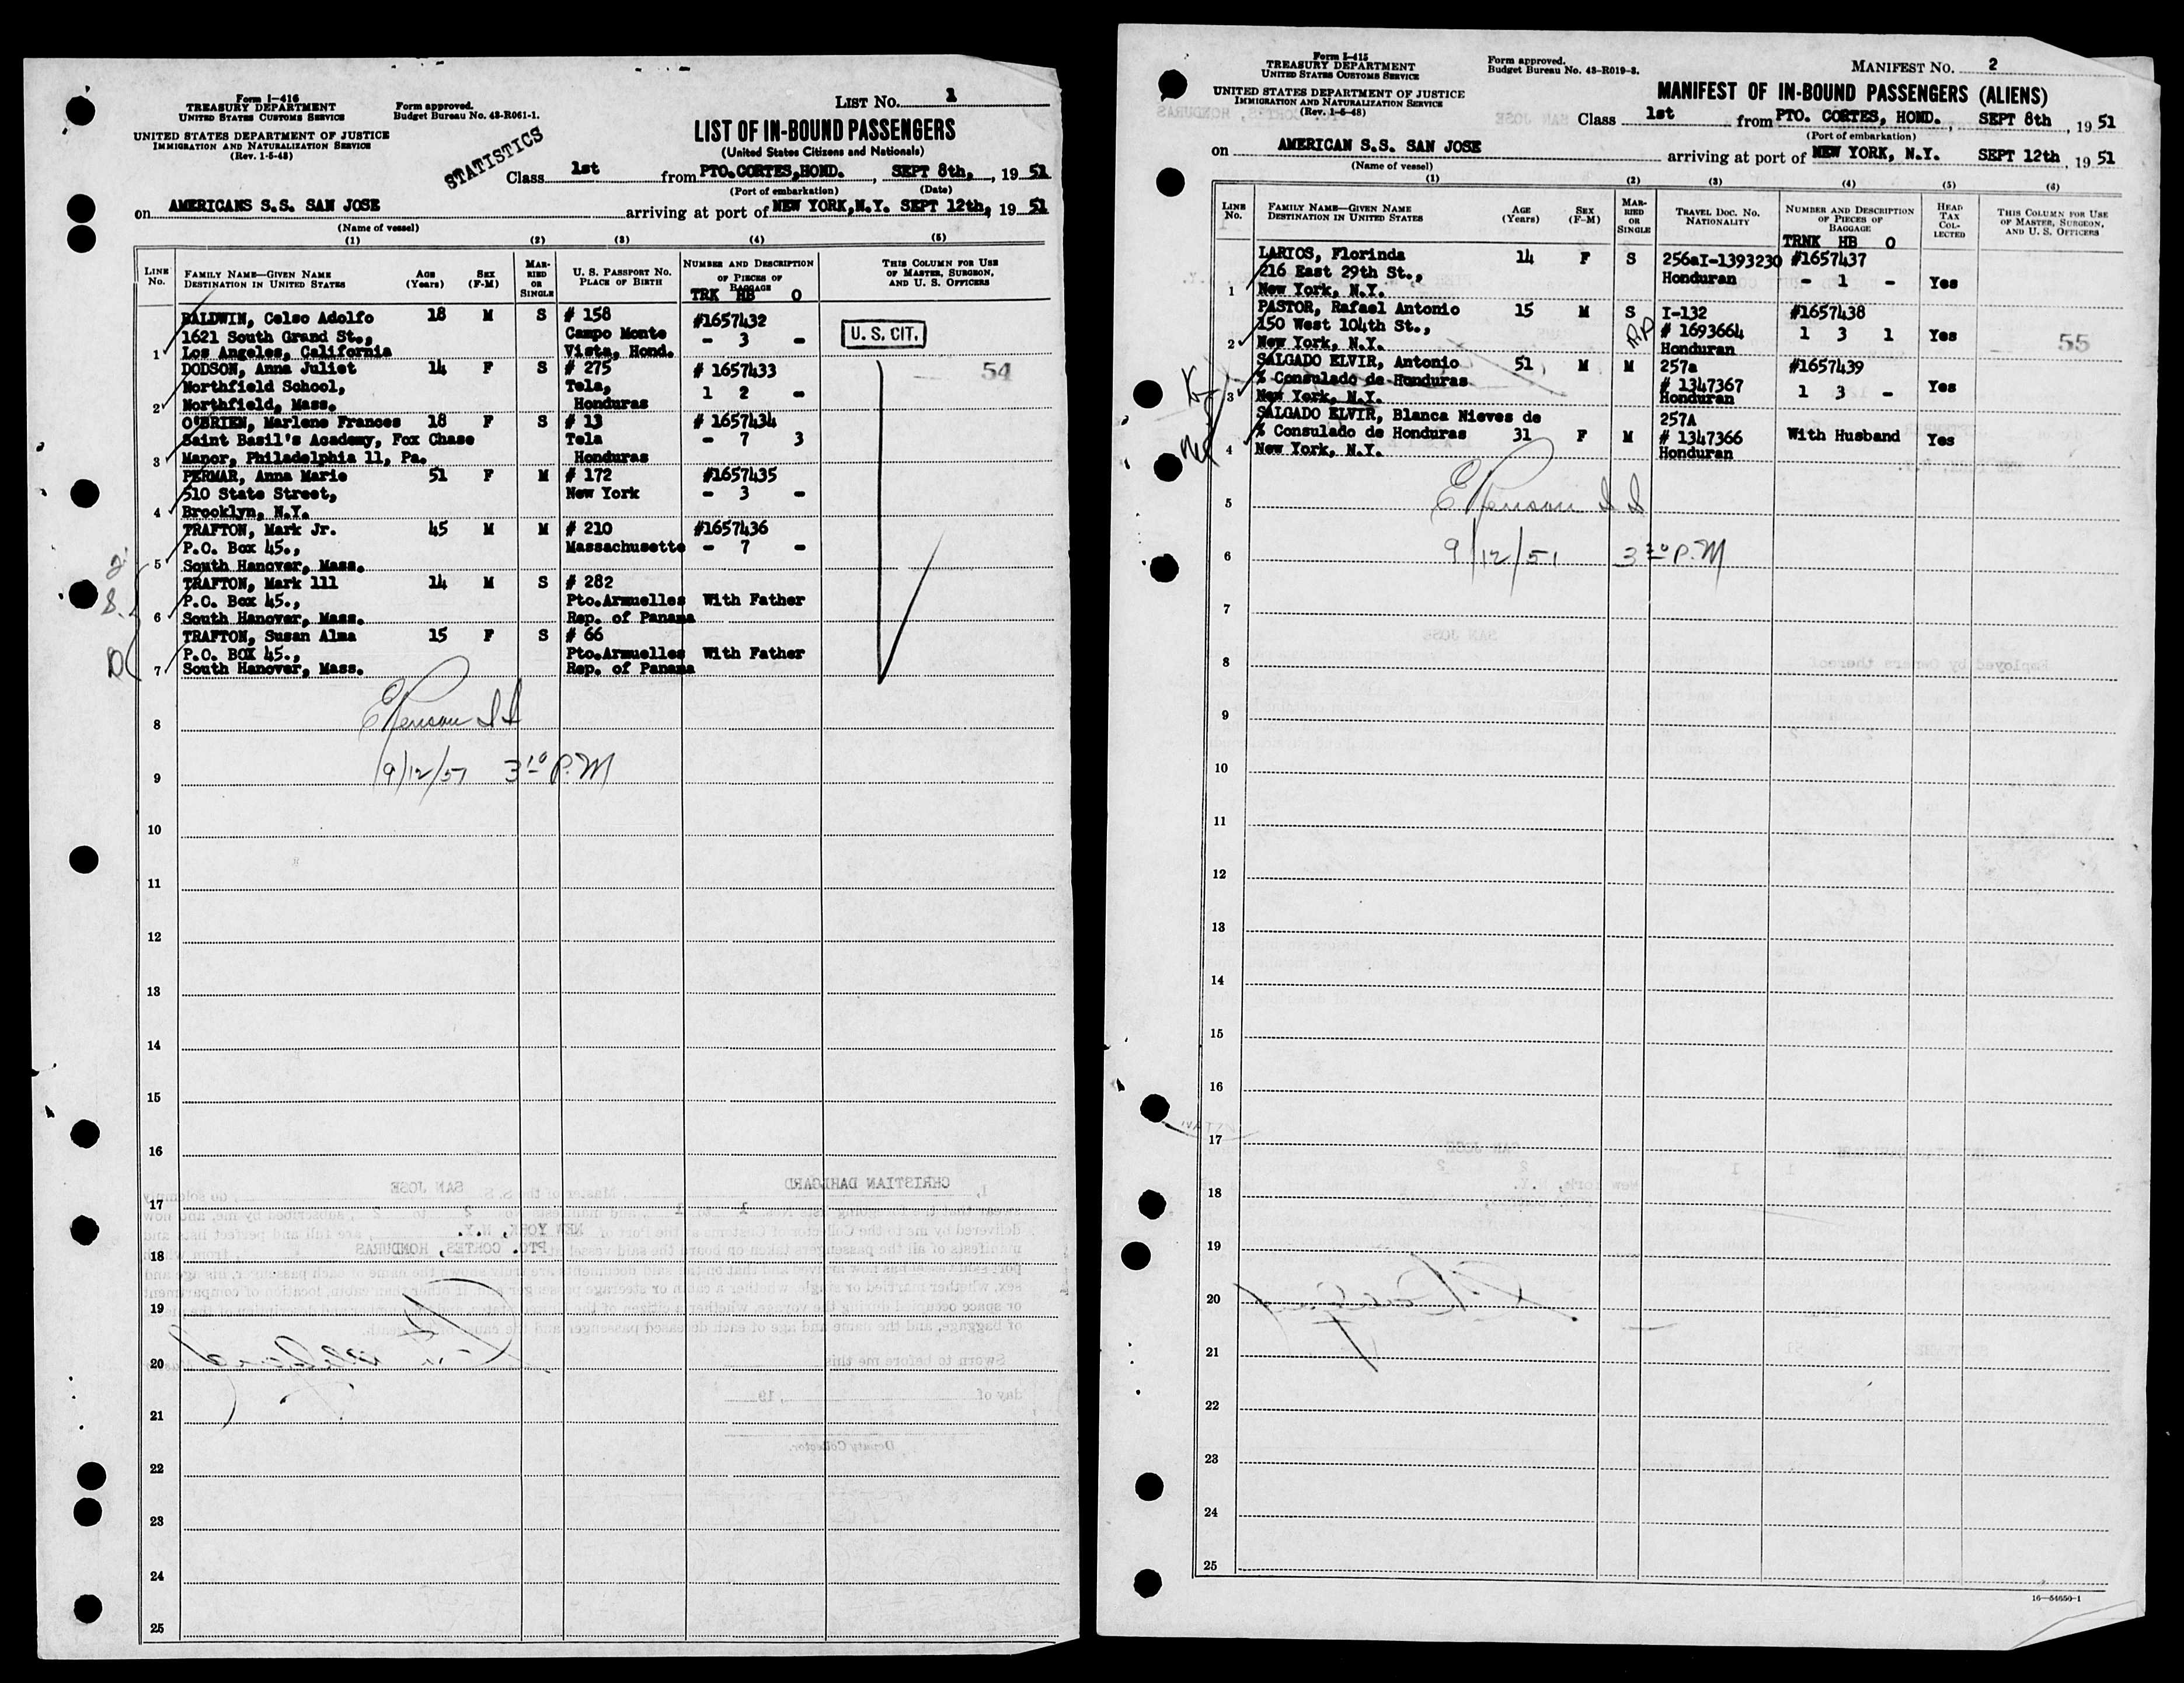 Form I-416
TREASURY DEPARTMENT
UNITED STATES CUSTOMS SERVICE
UNITED STATES DEPARTMENT OF JUSTICE
IMMIGRATION AND NATURALIZATION SERVICE
(Rev. 1-5-48)
Form approved.
Budget Bureau No. 43-R061-1.
STATISTICS
LIST NO. 1
LIST OF IN-BOUND PASSENGERS
(United States Citizens and Nationals)
Class 1st from PTO.CORTES,HOND. , SEPT 8th, , 19 51
(Port of embarkation) (Date)
on AMERICANS S.S. SAN JOSE arriving at port of NEW YORK,N.Y. SEPT 12th, 19 51
(Name of vessel)
(1) (2) (3) (4) (5)
LINE NO.
FAMILY NAME—GIVEN NAME
DESTINATION IN UNITED STATES
AGE (Years)
SEX (F-M)
MARRIED OR SINGLE
U. S. PASSPORT NO.
PLACE OF BIRTH
NUMBER AND DESCRIPTION OF PIECES OF BAGGAGE
TRK HB O
THIS COLUMN FOR USE OF MASTER, SURGEON, AND U. S. OFFICERS
BALDWIN, Celso Adolfo 18 M S # 158 #1657432
1621 South Grand St., Campo Monte - 3 - U. S. CIT.
1 Los Angeles, California Vista, Hond.
DODSON, Anna Juliet 14 F S # 275 # 1657433 54
Northfield School, Tela, 1 2 -
2 Northfield, Mass. Honduras
O'BRIEN, Marlene Frances 18 F S # 13 # 1657434
Saint Basil's Academy, Fox Chase Tela - 7 3
3 Manor, Philadelphia 11, Pa. Honduras
PERMAR, Anna Marie 51 F M # 172 #1657435
510 State Street, New York - 3 -
4 Brooklyn, N.Y.
TRAFTON, Mark Jr. 45 M M # 210 #1657436
P.O. Box 45., Massachusetts - 7 -
5 South Hanover, Mass.
TRAFTON, Mark 111 14 M S # 282
P.O. Box 45., Pto.Armuelles With Father
6 South Hanover, Mass. Rep. of Panama
TRAFTON, Susan Alma 15 F S # 66
P.O. BOX 45., Pto.Armuelles With Father
7 South Hanover, Mass. Rep. of Panama
8
9/12/51 3 10 P.M
9
10
11
12
13
14
15
16
17
18
19
20
21
22
23
24
25
Form I-415
TREASURY DEPARTMENT
UNITED STATES CUSTOMS SERVICE
UNITED STATES DEPARTMENT OF JUSTICE
IMMIGRATION AND NATURALIZATION SERVICE
(Rev. 1-5-48)
Form approved.
Budget Bureau No. 43-R019-3.
MANIFEST NO. 2
MANIFEST OF IN-BOUND PASSENGERS (ALIENS)
Class 1st from PTO. CORTES, HOND. , SEPT 8th , 19 51
(Port of embarkation)
on AMERICAN S.S. SAN JOSE arriving at port of NEW YORK, N.Y. SEPT 12th , 19 51
(Name of vessel)
(1) (2) (3) (4) (5) (6)
LINE NO.
FAMILY NAME—GIVEN NAME
DESTINATION IN UNITED STATES
AGE (Years)
SEX (F-M)
MARRIED OR SINGLE
TRAVEL DOC. NO.
NATIONALITY
NUMBER AND DESCRIPTION OF PIECES OF BAGGAGE
TRNK HB O
HEAD TAX COLLECTED
THIS COLUMN FOR USE OF MASTER, SURGEON, AND U. S. OFFICERS
LARIOS, Florinda 14 F S 256aI-1393230 #1657437
216 East 29th St., Honduran - 1 - Yes
1 New York, N.Y.
PASTOR, Rafael Antonio 15 M S I-132 #1657438
150 West 104th St., # 1693664 1 3 1 Yes 55
2 New York, N.Y. Honduran
SALGADO ELVIR, Antonio 51 M M 257a #1657439
% Consulado de Honduras # 1347367 1 3 - Yes
3 New York, N.Y. Honduran
SALGADO ELVIR, Blanca Nieves de 257A
% Consulado de Honduras 31 F M # 1347366 With Husband Yes
4 New York, N.Y. Honduran
5
9/12/51 3 20 P.M
6
7
8
9
10
11
12
13
14
15
16
17
18
19
20
21
22
23
24
25
16—54650-1